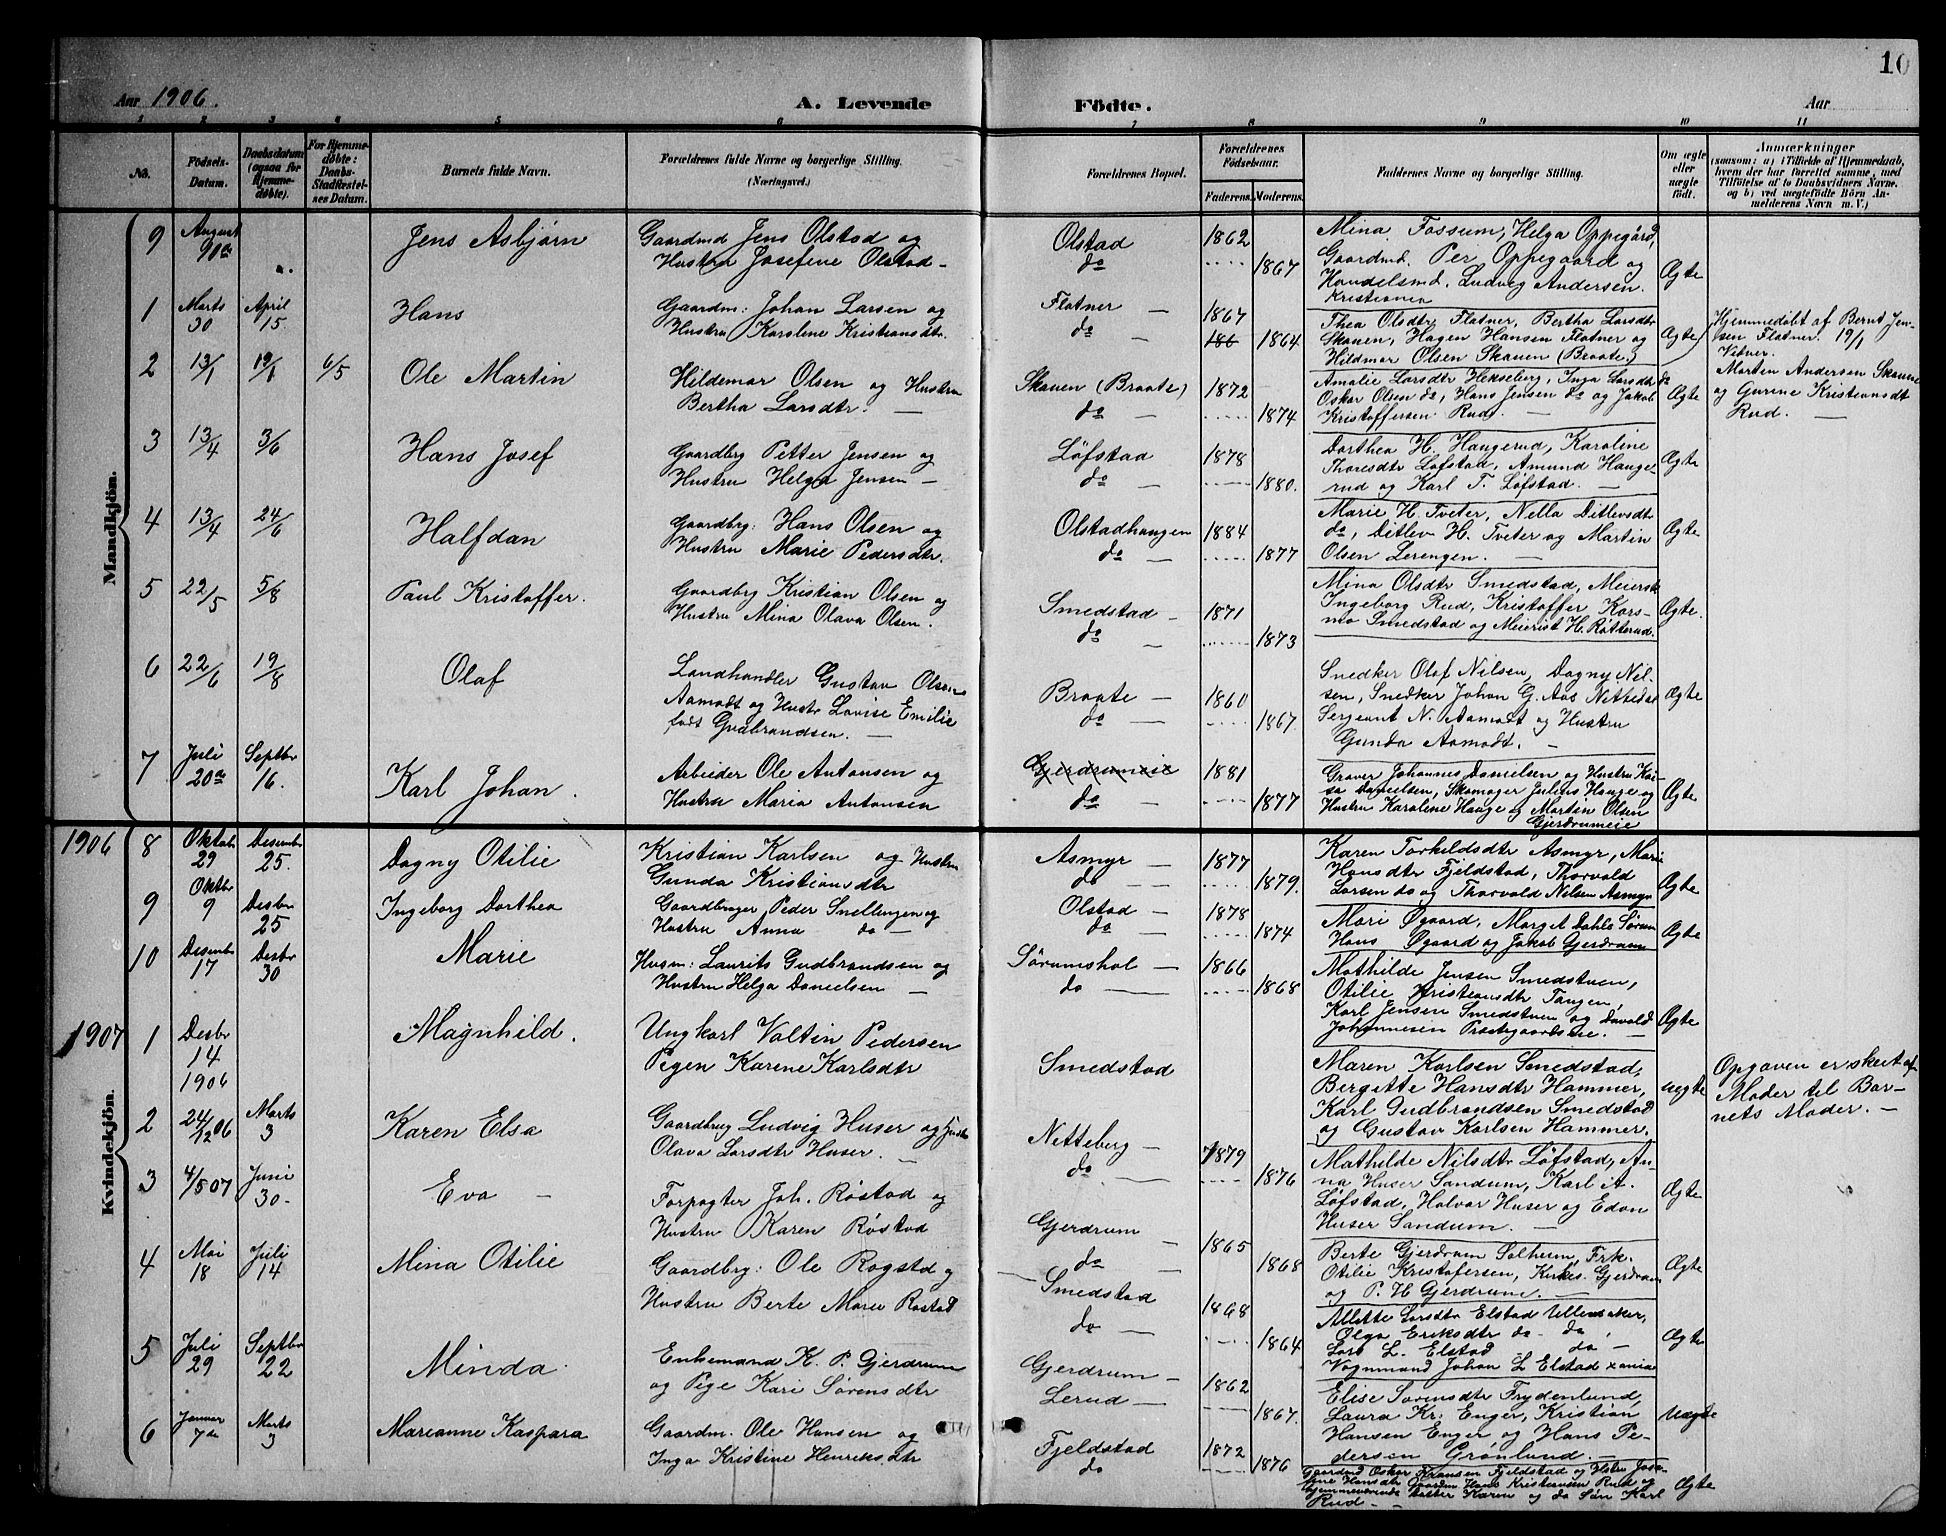 Aar 1906.
A. Levende Födte.
Aar
10
1 2 3 4 5 6 7 8 9 10 11
No.
Födsels-
Datum.
Daabsdatum
(ogsaa for
Hjemme-
døbte).
For Hjemme-
døbte:
Daabs-
Stadfæstel-
ses Datum.
Barnets fulde Navn.
Forældrenes fulde Navne og borgerlige Stilling.
(Næringsvei.)
Forældrenes Bopæl.
Forældrenes
Födselsaar.
Faderens. Moderens.
Faddernes Navne og borgerlige Stilling.
Om ægte
eller
uægte
født.
Anmærkninger
(saasom: a) i Tilfælde af Hjemmedaab,
hvem der har forrettet samme, med
Tilføielse af to Daabsvidners Navne.
og b) ved uægtefødte Börn An-
melderens Navn m. V.)
Mandkjön.
9
August
9de
Jens Asbjørn
Gaardmd Jens Olstad og
Hustru Josefine Olstad -
Olstad
do
1862
1867
Mina Fossum, Helga Oppegård,
Gaardmd. Per Oppegaard og
Handelsmd. Ludvig Andersen.
Kristiania
Ægte
1
Marts
30
April
15
Hans
Gaardm: Johan Larsen og
Hustru Karolene Kristiansdtr.
Flatner
do
1867
186 1864
Thea Olsdtr Flatner, Bertha Larsdtr
Skauen, Hagen Hansen Flatner og
Hildmar Olsen Skauen (Braate)
Ægte
Hjemmedøbt af Bernt Jen-
sen Flatner. 19/1
Vidner.
Morten Andersen Skauen
og Gurine Kristiansdt
Rud.
2
13/1
19/1
6/5
Ole Martin
Hildemar Olsen og Hustru
Bertha Larsdtr.
Skauen (Braate)
do
1872
1874
Amalie Larsdtr Hekseberg, Inga Larsdtr do
Oskar Olsen do, Hans Jensen do og Jakob
Kristoffersen Rud.
Ægte
3
13/4
3/6
Hans Josef
Gaardbrg Petter Jensen og
Hustru Helga Jensen -
Løfstad
do
1878
1880.
Dorthea H. Haugerud, Karoline
Thoresdtr Løfstad, Amund Hauge-
rud og Karl T. Løfstad.
Ægte
4
13/4
24/6
Halfdan
Gaardbrg: Hans Olsen og
Hustru Marie Pedersdtr.
Olstadhaugen
do
1884
1877
Marie H. Tveter, Nella Ditlevsdtr
do, Ditlev H. Tveter og Martin
Olsen Lerengen.
Ægte
5
22/5
5/8
Paul Kristoffer.
Gaardbrg Kristian Olsen og
Hustru Mina Olava Olsen.
Smedstad
do
1871
1873
Mina Olsdtr Smedstad, Meiersk
Ingeborg Rud, Kristoffer Kors-
mo Smedstad og Meierist H. Røtterud.
Ægte.
6
22/6
19/8
Olaf
Landhandler Gustav Olsen
Aamodt og Hustr Lovise Emilie
født Gudbrandsen.
Braate
do
1860
1867
Snedker Olaf Nilsen, Dagny Nil-
sen, Snedker Johan G. Aas
Sergeant N. Aamodt og Hustru
Gunda Aamodt.
Ægte
7
Juli
20de
Septbr
16.
Karl Johan.
Arbeider Ole Antonsen og
Hustru Maria Antonsen
Gjerdrumeie
do
1881
1877
Graver Johannes Danielsen og Hustru Kai-
sa Danielsen, Skomager Julius Hauge og
Hustru Karolene Hauge og Martin Olsen
Gjerdrumeie
Ægte
1906
Kvindekjön.
8
Oktob.
29
Desembr
25.
Dagny Otilie
Kristian Karlsen og Hustru
Gunda Kristiansdtr
Asmyr
do
1877
1879.
Karen Torkildsdtr Asmyr, Mari
Hansdtr Fjeldstad, Thorvald
Larsen do og Thorvald Nilsen Asmyr
Ægte
9
Oktbr
9
Desbr
25
Ingeborg Dorthea
Gaardbruger Peder Snellingen og
Hustru Anna do
Olstad
do
1878
1874
Mari Øgaard, Marget Dahls Sørum
Hans Øgaard og Jakob Gjerdrum
Ægte
10
Desembr
17
Desbr
30
Marie
Husm: Laurits Gudbrandsen og
Hustru Helga Danielsen
Sørumshol
do
1866
1868
Mathilde Jensen Smedstuen,
Otilie Kristiansdtr Tangen,
Karl Jensen Smedstuen og David
Johannesen Præstgaardseie.
Ægte
1907
1
Desbr
14
1906
Magnhild.
Ungkarl Valtin Pedersen
Pigen Karene Karlsdtr
Smedstad
Maren Karlsen Smedstad,
Bergitte Hansdtr Hammer,
Karl Gudbrandsen Smedstad
og Gustav Karlsen Hammer.
Uægte
Opgaven er skeet af
Moder til Bar-
nets Moder.
2
24/12 06
Marts
3
Karen Elsa
Gaardbrug Ludvig Huser og
Olava Larsdtr Huser.
Nitteberg
do
1879
1876
Mathilde Nilsdtr Løfstad, An-
na Huser Sandum, Karl A.
Løfstad, Halvar Huser og Edon
Huser Sandum.
Ægte
3
4/5 07
Juni
30.
Eva
Forpagter Joh. Røstad og
Hustru Karen Røstad
Gjerdrum
do
1865
1868
Berte Gjerdrum Solheim, Frk.
Otilie Kristofersen, Kirkes. Gjerdrum
og P. H Gjerdrum.
Ægte
4
Mai
18
Juli
14
Mina Otilie
Gaardbrg: Ole Rogstad og
Hustru Berte Marie Rostad
Smedstad
do
1868
1864
Allette Larsdtr Elstad Ullensaker,
Olga Eriksdtr do. do,
Lars L. Elstad do
Vognmand Johan L Elstad xania
Ægte
5
Juli
29
Septbr
22
Minda.
Enkemand K. P. Gjerdrum
og Pige Kari Sørensdtr
Gjerdrum
Lerud
1862
1867.
Elise Sørensdtr Frydenlund,
Laura Kr: Enger, Kristian
Hansen Enger og Hans Pe-
dersen Grønlund.
Uægte
6
Januar
7de
Marts
3
Marianne Kaspara
Gaardm. Ole Hansen og
Inga Kristine Henriksdtr
Fjeldstad
do
1872
1876
Gaardmd Oskar Fransen Fjeldstad og Hstr Jose-
fine Hansdtr Gaardm Hans Kristiansen Rud og
hjemmeværende Datter Karen og do Søn Karl
Rud
Ægte